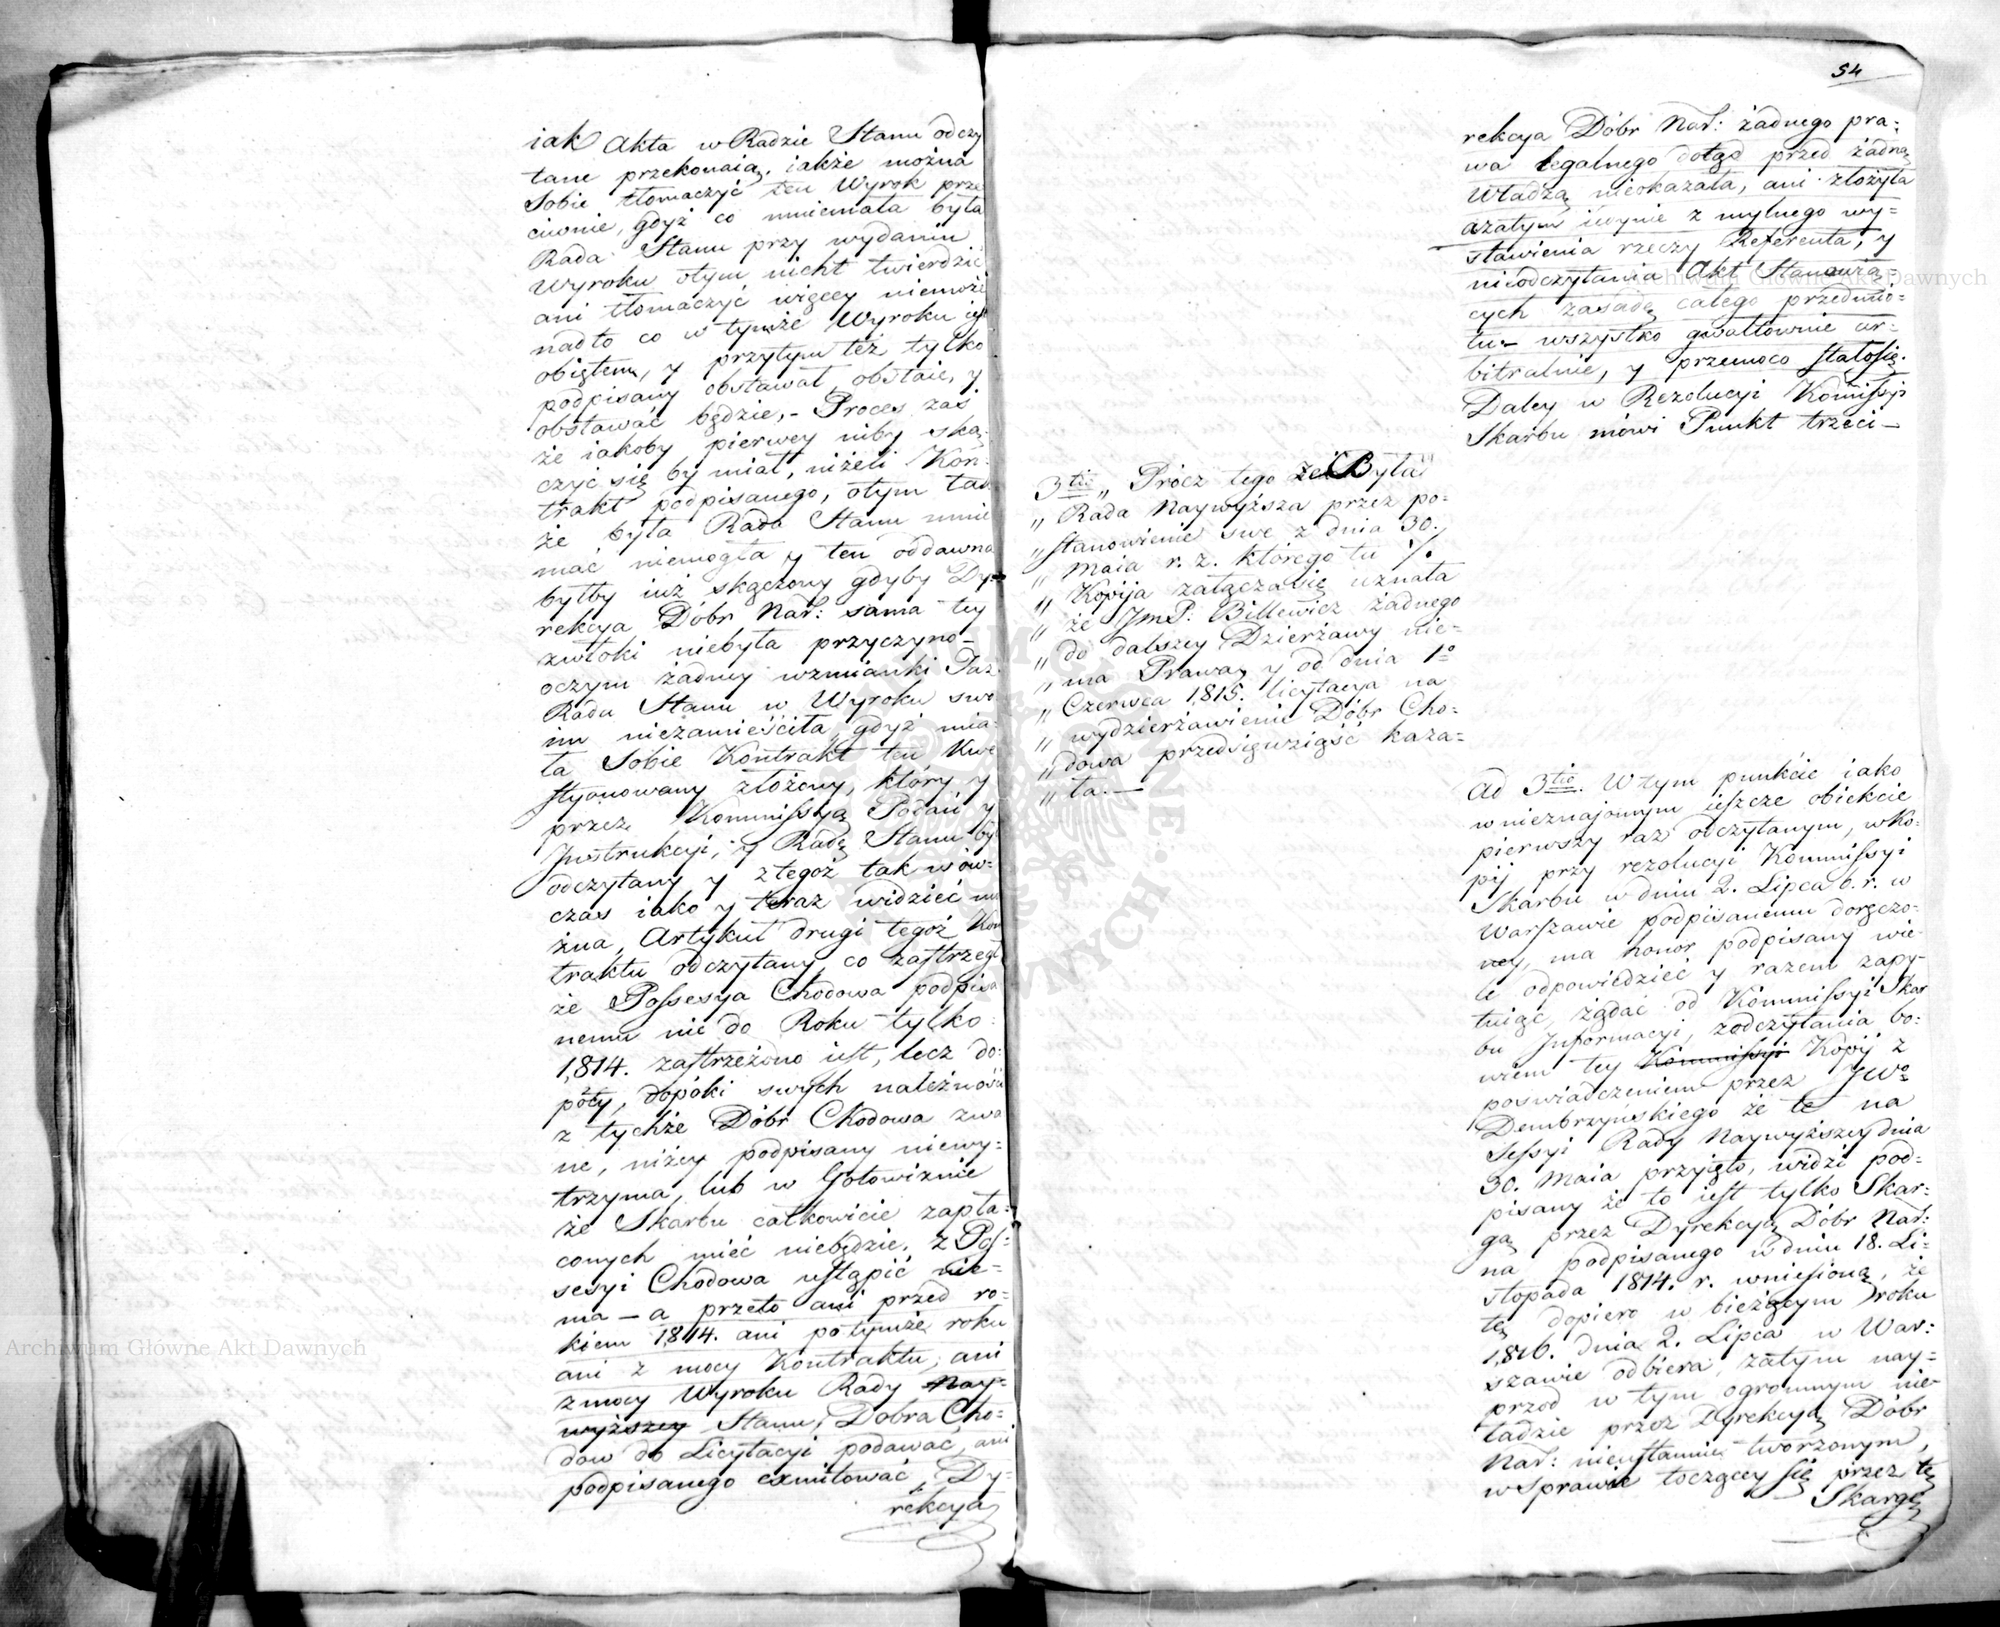 iak Akta w Radzie Stanu odczy
tane przekonaią. iakże można
Sobie tłomaczyć ten Wyrok prze
ciwnie, gdyż co mniemała była
Rada Stanu przy wydaniu
Wyroku otym nicht twierdzić
ani tłomaczyć więcey niemoże
nadto co w tymże Wyroku iest
obiętem, y przytym też tylko
podpisany obstawał, obstaie, y
obstawać będzie,- Proces zaś
że iakoby pierwey niby ską-
czyć się by miał, niżeli Kon-
trakt podpisanego, otym tak
że była Rada Stanu mnie
mać niemogła y ten oddawna
byłby iuż skączony gdyby Dy-
rekcya Dóbr Nar: sama tey
zwłoki niebyła przyczyno-
oczym żadney wzmianki Taż
Rada Stanu w Wyroku swo
im niezamieściła, gdyż mia-
ła Sobie Kontrakt ten Kwe
styonowany złożony, który y
przez Kommissyą Podań y
Instrukcyi, y Radę Stanu był
odczytany y ztegoż tak wów-
czas iako y teraz widzieć mo
żna, Artykuł drugi tegoż Kon
traktu odczytany, co zastrzegł
że Possesya Chodowa podpisa
nemu nie do Roku tylko
1814. zastrzeżono iest, lecz do-
póty, dopóki swych należności
z tychże Dóbr Chodowa zwa
ne, niżey podpisany niewy-
trzyma, lub w Gotowiznie
że Skarbu całkowicie zapła-
conych mieć niebędzie, z Pos-
sesyi Chodowa ustąpić nie-
ma - a przeto ani przed ro-
kiem 1814. ani potymże roku
ani z mocy Kontraktu, ani
z mocy Wyroku Rady Nay-
wyższey Stanu, Dobra Cho-
dow do Licytacyi podawać, ani
podpisanego exmitować, Dy-
rekcya
54
rekcya Dóbr Nar: żadnego pra-
wa legalnego dotąd przed żadną
Władzą nieokazała, ani złożyła
azatym iedynie z mylnego wy-
stawienia rzeczy Referenta, y
nieodczytania Akt Stanowią-
cych zasadę całego przedmio-
tu- wszystko gwałtownie ar-
bitralnie, y przemoco stałosię.
Daley w Rezolucyi Kommissyi
Skarbu mówi Punkt trzeci-
3tio „ Prócz tego że Była
„ Rada Naywyższa przez po-
„ stanowienie swe z dnia 30.
„ Maia r. z. którego tu ./.
„ Kopija załącza się uznała
„ że JmP: Billewicz żadnego
„ do dalszey Dzierżawy nie-
„ ma Prawa, y od dnia 1o
„ Czerwca 1815. licytacya na
„ wydzierżawienie Dóbr Cho-
„ dowa przedsięwziąść kaza-
„ ła.-
Ad 3tio. W tym punkcie iako
wnieznajomym ieszcze obiekcie
pierwszy raz odczytanym, wko-
pij przy rezolucyi Kommissyi
Skarbu w dniu 2. Lipca b. r. w
Warszawie podpisanemu doręczo-
ney, ma honor podpisany wie-
le odpowiedzieć y razem zapy-
tuiąc, żądać od Kommissyi Skar
bu Informacyi, zodczytania bo-
wiem tey Kommissyi Kopij z
poswiadczeniem przez JWo
Dembrzyńskiego że te na
Sessyi Rady Naywyższey dnia
30. Maia przyięto, widzi pod-
pisany że to iest tylko Skar-
gą przez Dyrekcyą Dóbr Nar:
na podpisanego w dniu 18. Li-
stopada 1814. r. wniesioną, że
tę dopiero w bieżącym roku
1816. dnia 2. Lipca w War-
szawie odbiera, zatym nay-
przód w tym ogromnym nie-
ładzie przez Dyrekcyą Dóbr
Nar: nieustannie tworzonym,
w sprawie toczącey się przez tę
Skargę